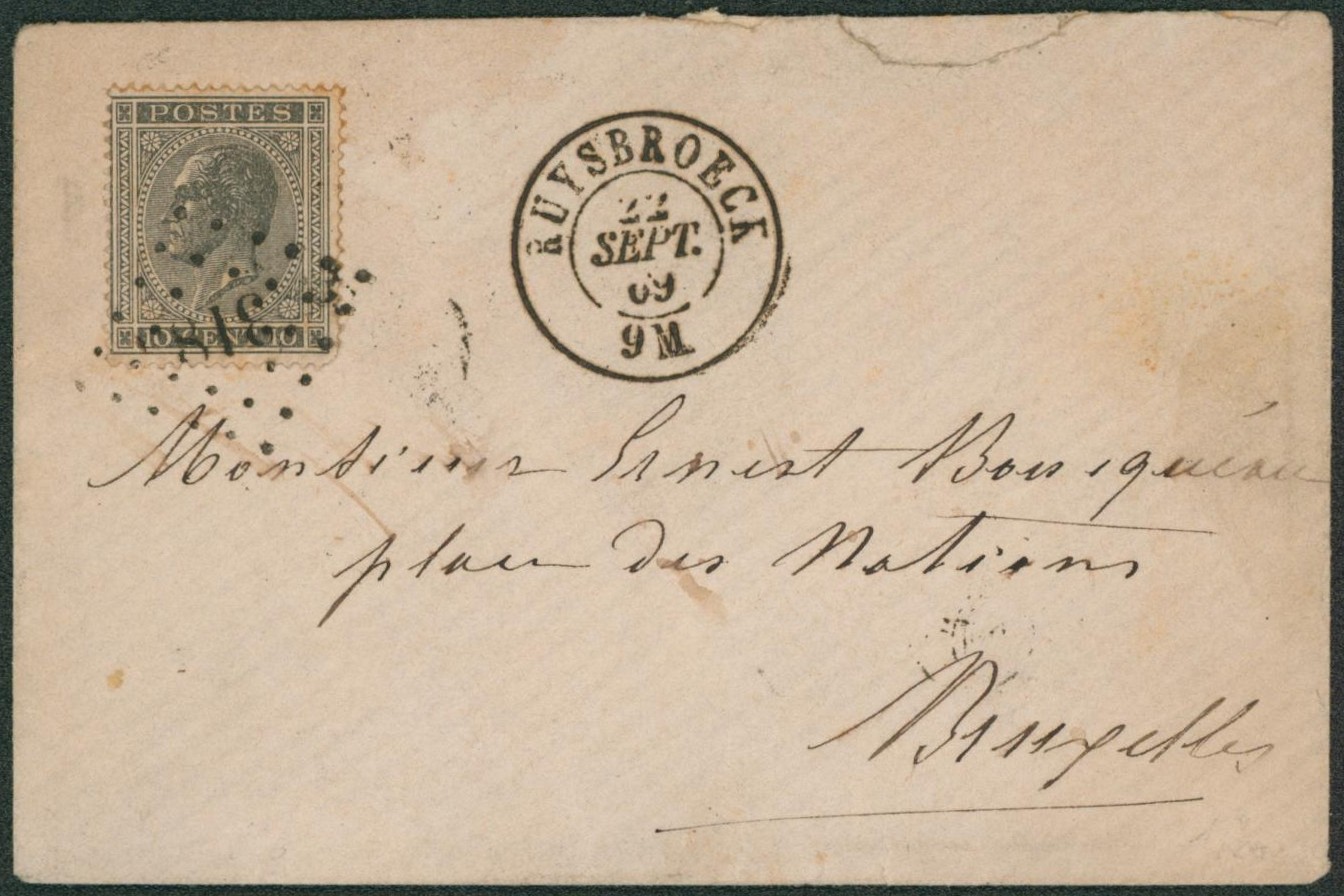 POSTES
10 CENT. 10
318
RUYSBROECK
22
SEPT.
69
9 M
Monsieur Ernest
place des Nations
Bruxelles